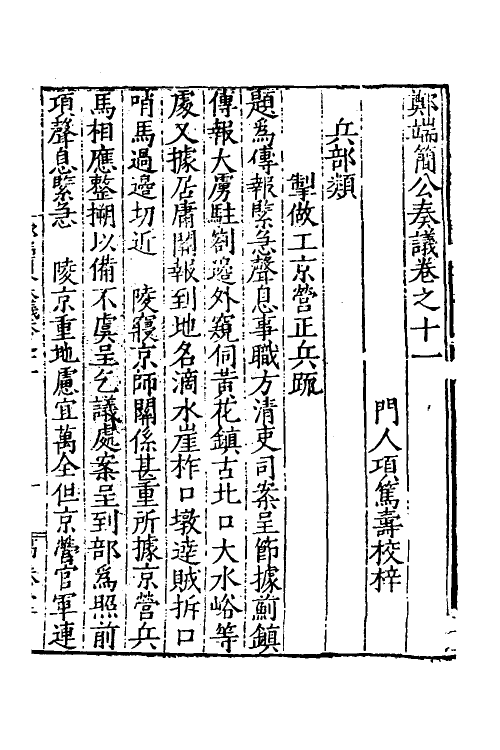 鄭端簡公奏議卷之十一
門人項篤壽校梓
兵部類
掣做工京營正兵疏
題為傳報緊急聲息事職方清吏司案呈節據薊鎮
傳報大虜駐劄邊外窺伺黃花鎮古北口大水峪等
處又據居庸關報到地名滴水崖柞口墩達賊拆口
哨馬過邊切近 陵寢京師關係甚重所據京營兵
馬相應整搠以備不虞呈乞議處案呈到部為照前
項聲息緊急 陵京重地慮宜萬全但京營官軍連